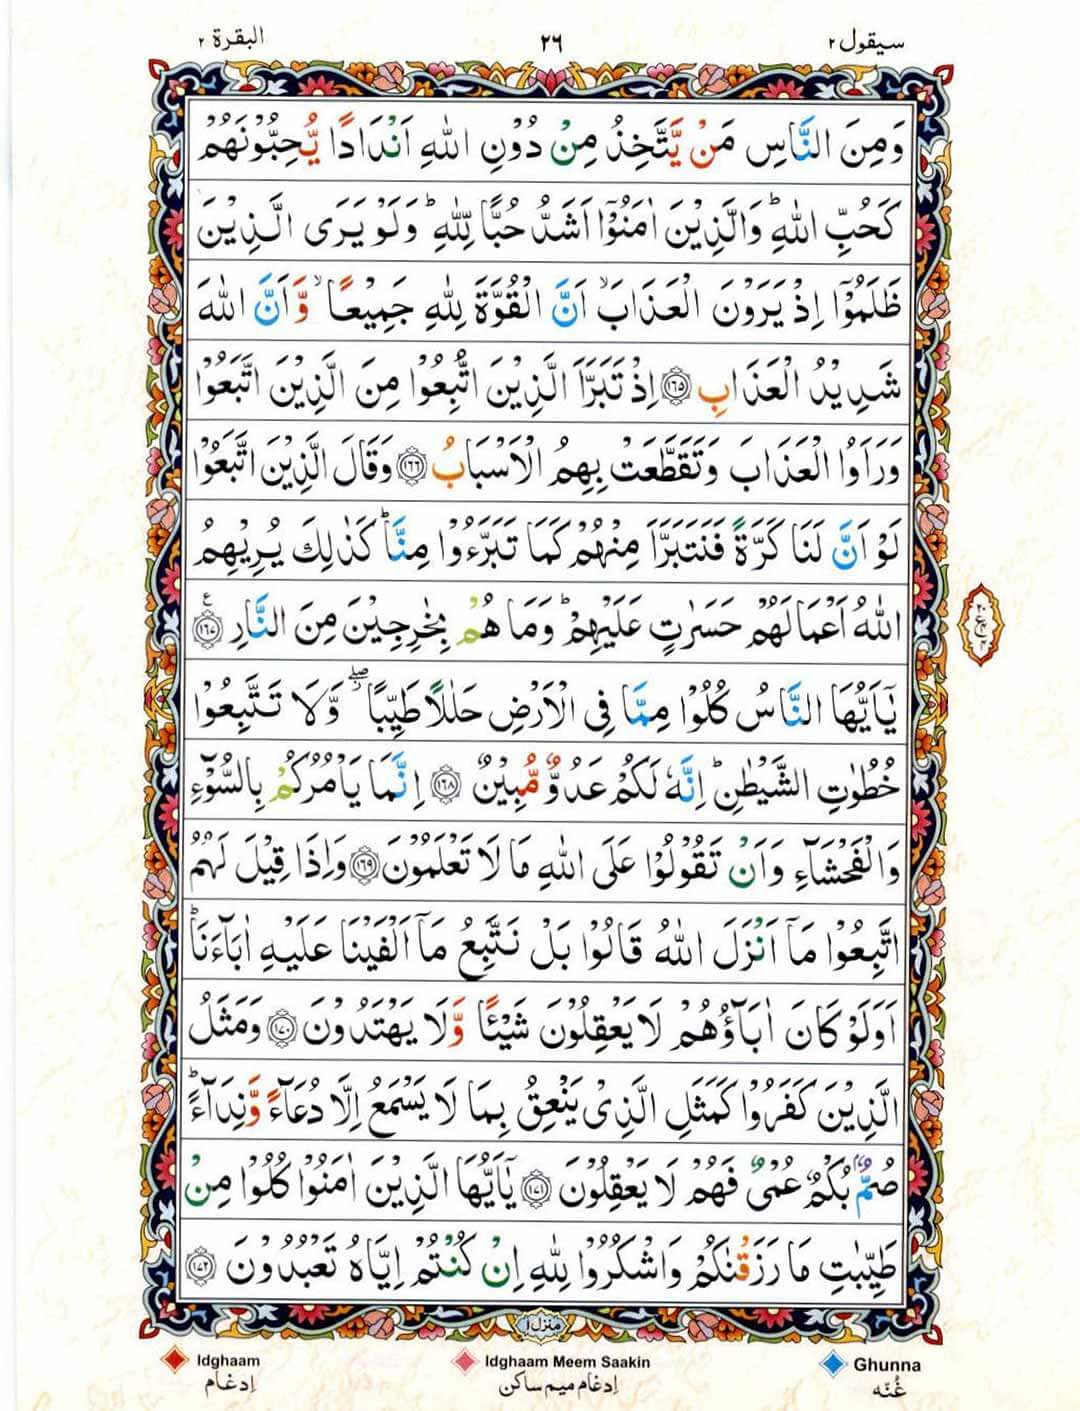 سیقول ٢
٢٦
البقرة ٢
وَمِنَ النَّاسِ مَنْ يَّتَّخِذُ مِنْ دُوْنِ اللّٰهِ اَنْدَادًا يُّحِبُّوْنَهُمْ
كَحُبِّ اللّٰهِ ؕ وَالَّذِيْنَ اٰمَنُوْٓا اَشَدُّ حُبًّا لِّلّٰهِ ؕ وَلَوْ يَرَى الَّذِيْنَ
ظَلَمُوْٓا اِذْ يَرَوْنَ الْعَذَابَ ۙ اَنَّ الْقُوَّةَ لِلّٰهِ جَمِيْعًا ۙ وَّاَنَّ اللّٰهَ
شَدِيْدُ الْعَذَابِ ﴿١٦٥﴾ اِذْ تَبَرَّاَ الَّذِيْنَ اتُّبِعُوْا مِنَ الَّذِيْنَ اتَّبَعُوْا
وَرَاَوُا الْعَذَابَ وَتَقَطَّعَتْ بِهِمُ الْاَسْبَابُ ﴿١٦٦﴾ وَقَالَ الَّذِيْنَ اتَّبَعُوْا
لَوْ اَنَّ لَنَا كَرَّةً فَنَتَبَرَّاَ مِنْهُمْ كَمَا تَبَرَّءُوْا مِنَّا ؕ كَذٰلِكَ يُرِيْهِمُ
اللّٰهُ اَعْمَالَهُمْ حَسَرٰتٍ عَلَيْهِمْ ؕ وَمَا هُمْ بِخٰرِجِيْنَ مِنَ النَّارِ ﴿١٦٧﴾ ع
يٰٓاَيُّهَا النَّاسُ كُلُوْا مِمَّا فِى الْاَرْضِ حَلٰلًا طَيِّبًا ۖ وَّلَا تَتَّبِعُوْا
خُطُوٰتِ الشَّيْطٰنِ ؕ اِنَّهٗ لَكُمْ عَدُوٌّ مُّبِيْنٌ ﴿١٦٨﴾ اِنَّمَا يَاْمُرُكُمْ بِالسُّوْٓءِ
وَالْفَحْشَآءِ وَاَنْ تَقُوْلُوْا عَلَى اللّٰهِ مَا لَا تَعْلَمُوْنَ ﴿١٦٩﴾ وَاِذَا قِيْلَ لَهُمُ
اتَّبِعُوْا مَآ اَنْزَلَ اللّٰهُ قَالُوْا بَلْ نَتَّبِعُ مَآ اَلْفَيْنَا عَلَيْهِ اٰبَآءَنَا ؕ
اَوَلَوْ كَانَ اٰبَآؤُهُمْ لَا يَعْقِلُوْنَ شَيْئًا وَّلَا يَهْتَدُوْنَ ﴿١٧٠﴾ وَمَثَلُ
الَّذِيْنَ كَفَرُوْا كَمَثَلِ الَّذِىْ يَنْعِقُ بِمَا لَا يَسْمَعُ اِلَّا دُعَآءً وَّنِدَآءً ؕ
صُمٌّۢ بُكْمٌ عُمْىٌ فَهُمْ لَا يَعْقِلُوْنَ ﴿١٧١﴾ يٰٓاَيُّهَا الَّذِيْنَ اٰمَنُوْا كُلُوْا مِنْ
طَيِّبٰتِ مَا رَزَقْنٰكُمْ وَاشْكُرُوْا لِلّٰهِ اِنْ كُنْتُمْ اِيَّاهُ تَعْبُدُوْنَ ﴿١٧٢﴾
منزل ١
Idghaam Idghaam Meem Saakin Ghunna
اِدغام اِدغام میم ساکن غُنّه